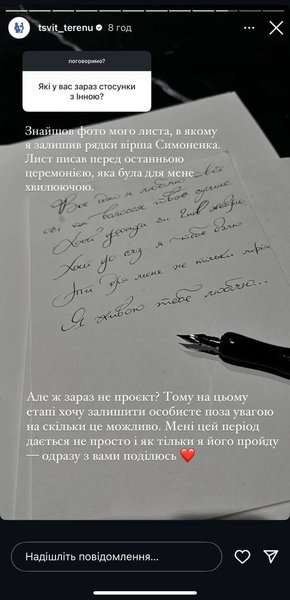 tsvit_terenu 8 год
поговоримо?
Які у вас зараз стосунки
з Інною?
Знайшов фото мого листа, в якому
я залишив рядки вірша Симоненка.
Лист писав перед останньою
церемонією, яка була для мене
хвилюючою.
Все одно я люблю твої
очі та волосся твоє сумне
Хай досада чи гнів жевріє
Хай до сліз я тебе
Ти для мене не тільки мрія
Я живою тебе люблю...
Але ж зараз не проєкт? Тому на цьому
етапі хочу залишити особисте поза увагою
на скільки це можливо. Мені цей період
дається не просто і як тільки я його пройду
— одразу з вами поділюсь ❤️
Надішліть повідомлення...